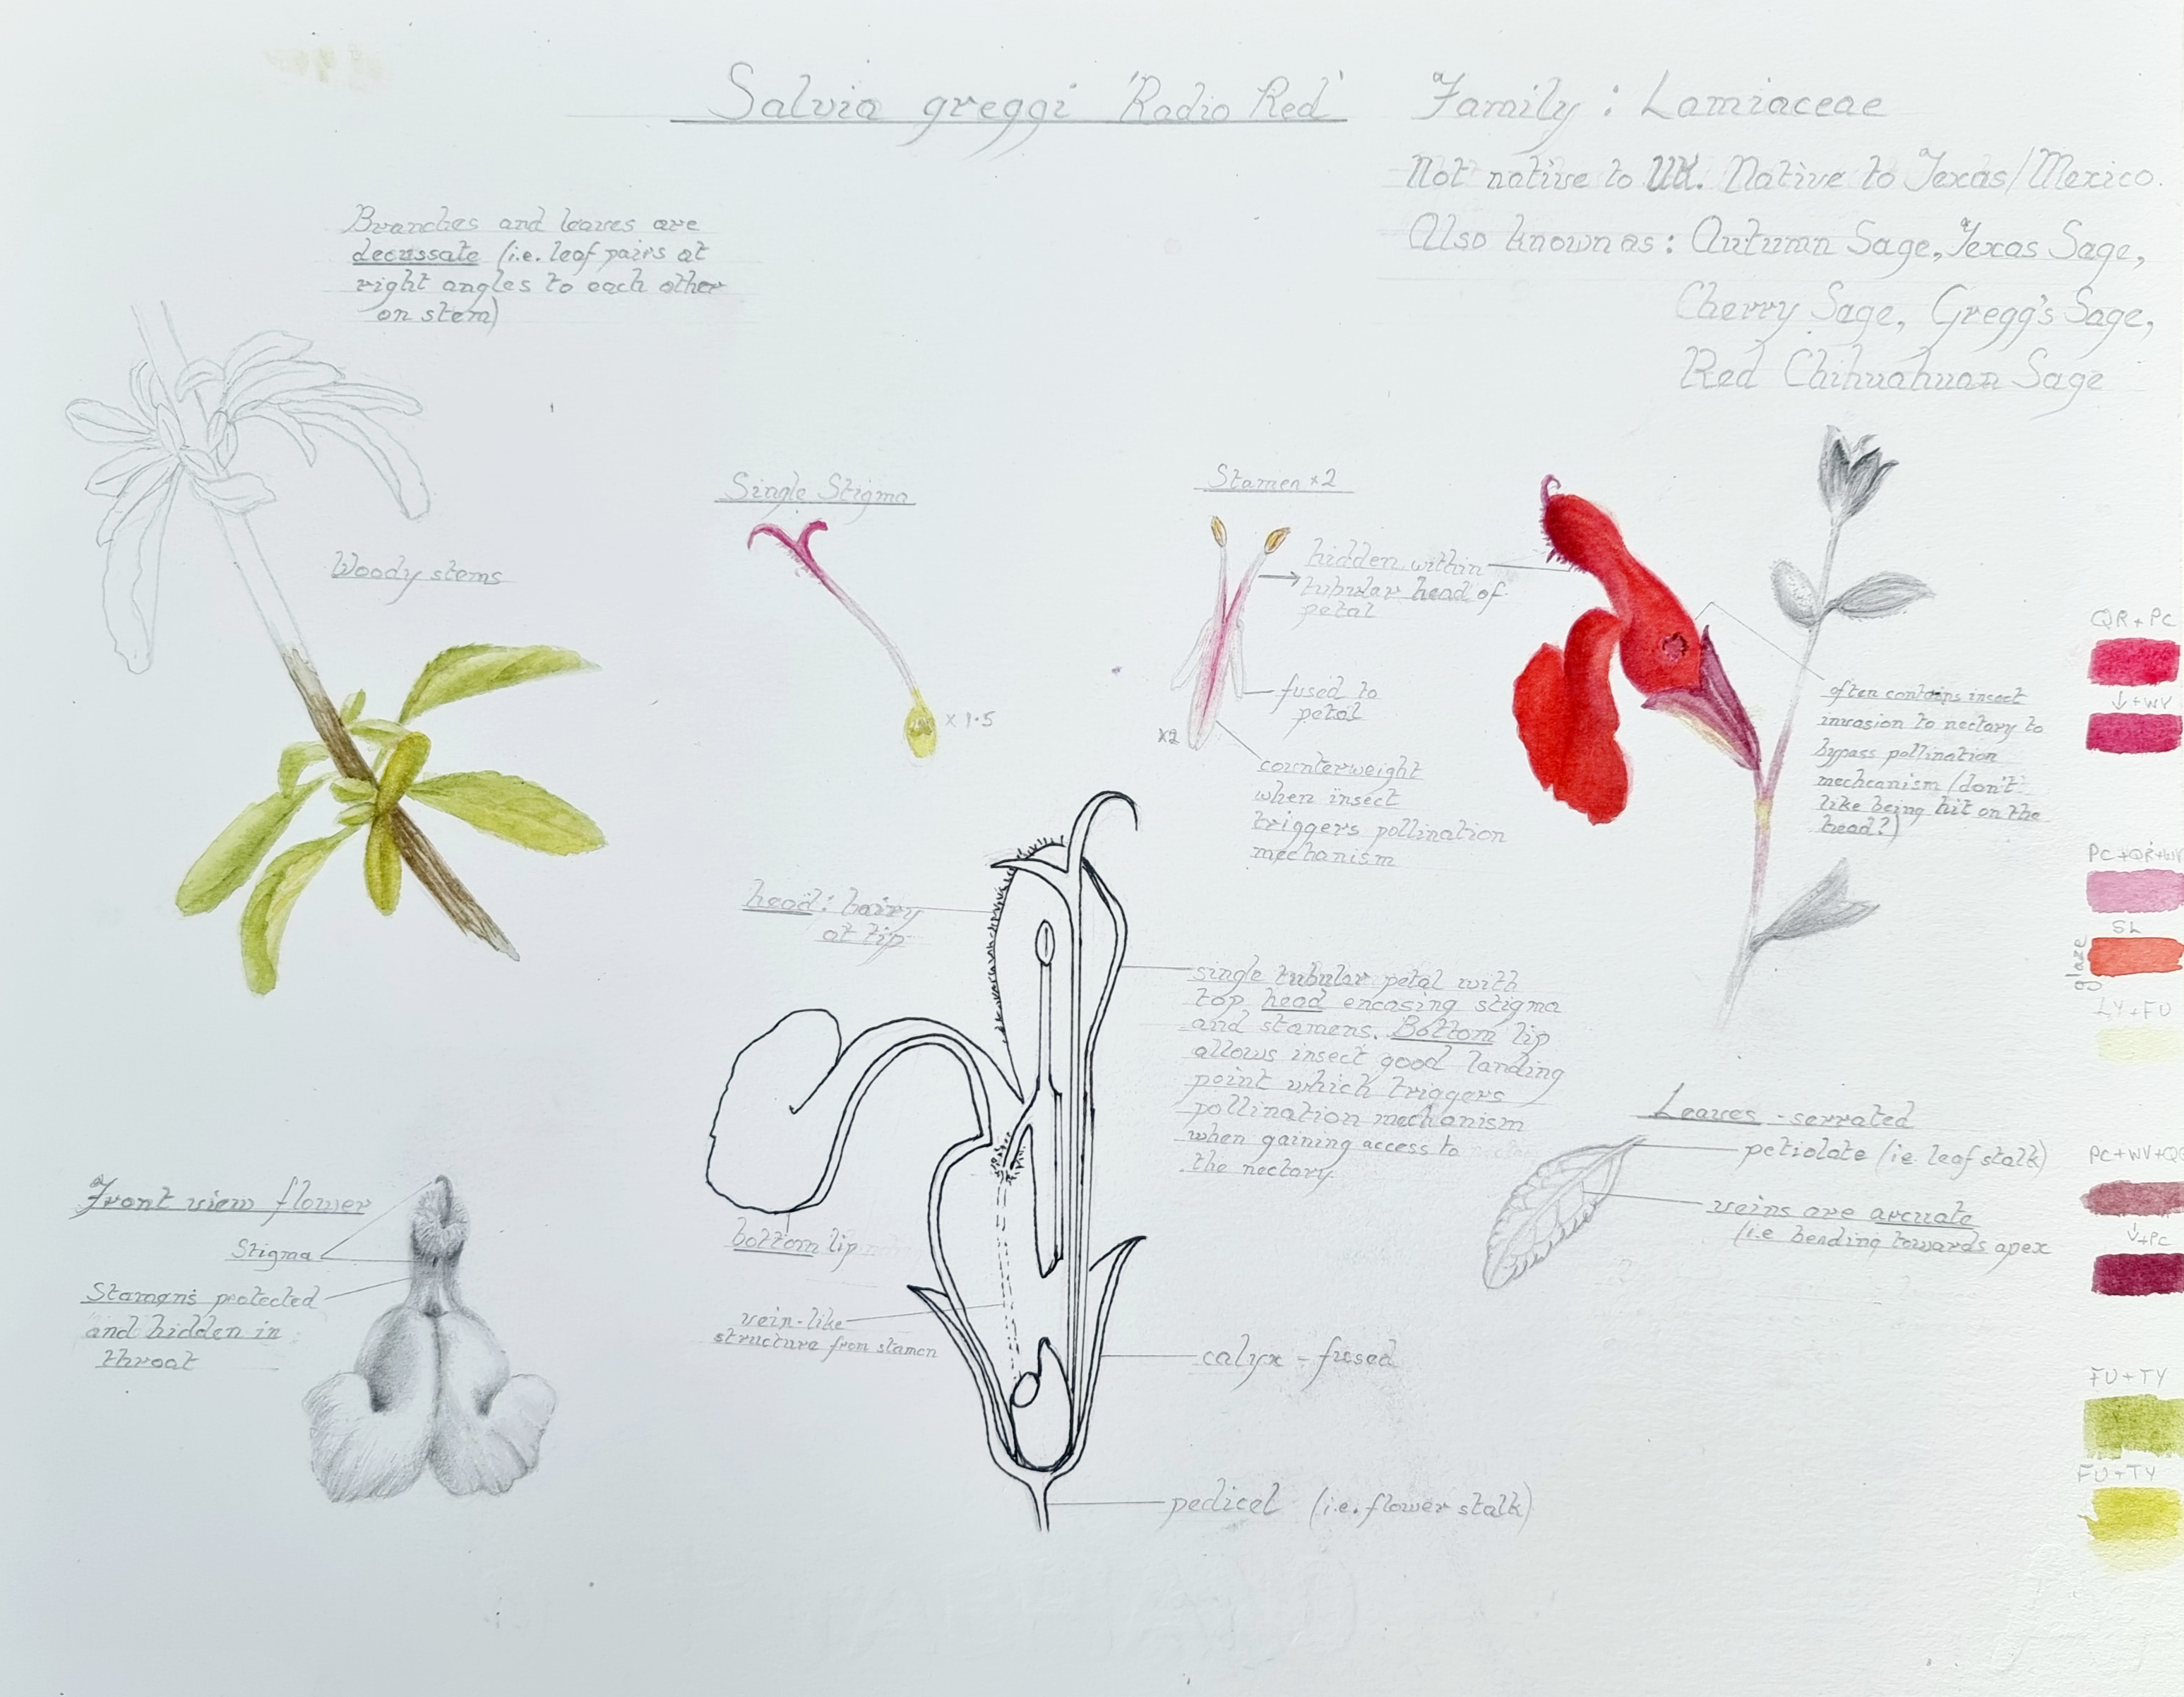 Salvia greggi 'Radio Red'
Family : Lamiaceae
Not native to UK. Native to Texas/Mexico.
Also known as: Autumn Sage, Texas Sage,
Cherry Sage, Gregg's Sage,
Red Chihuahuan Sage
Branches and leaves are
decussate (i.e. leaf pairs at
right angles to each other
on stem)
Woody stems
Single Stigma
x 1.5
Stamen x2
hidden within
tubular head of
petal
fused to
petal
x2
counterweight
when insect
triggers pollination
mechanism
often contains insect
invasion to nectary to
bypass pollination
mechanism (don't
like being hit on the
head?)
head: hairy
at tip
single tubular petal with
top head encasing stigma
and stamens. Bottom lip
allows insect good landing
point which triggers
pollination mechanism
when gaining access to
the nectary.
bottom lip
vein-like
structure from stamen
calyx - fused
pedicel (i.e. flower stalk)
Front view flower
Stigma
Stamens protected
and hidden in
throat
Leaves - serrated
petiolate (i.e. leaf stalk)
veins are arcuate
(i.e bending towards apex
QR + PC
↓+WV
PC+QR+WV
SL
glaze
LY+FU
PC+WV+QR
↓+PC
FU+TY
FU+TY